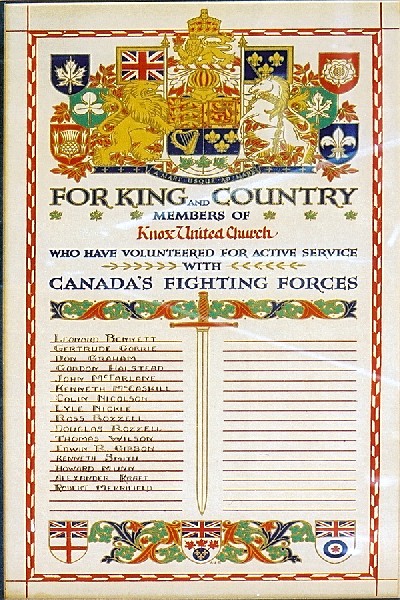 A MARI USQUE AD MARE
FOR KING AND COUNTRY
MEMBERS OF
Knox United Church
WHO HAVE VOLUNTEERED FOR ACTIVE SERVICE
WITH
CANADA'S FIGHTING FORCES
LEONARD BENNETT
GERTRUDE GORRIE
DON GRAHAM
GORDON HALSTEAD
JOHN McFARLANE
KENNETH McCASKILL
COLIN NICOLSON
LYLE NICKLE
ROSS ROZZELL
DOUGLAS ROZZELL
THOMAS WILSON
EDWIN R. GIBSON
KENNETH SMITH
HOWARD
ALEXANDER
MERRIFIELD